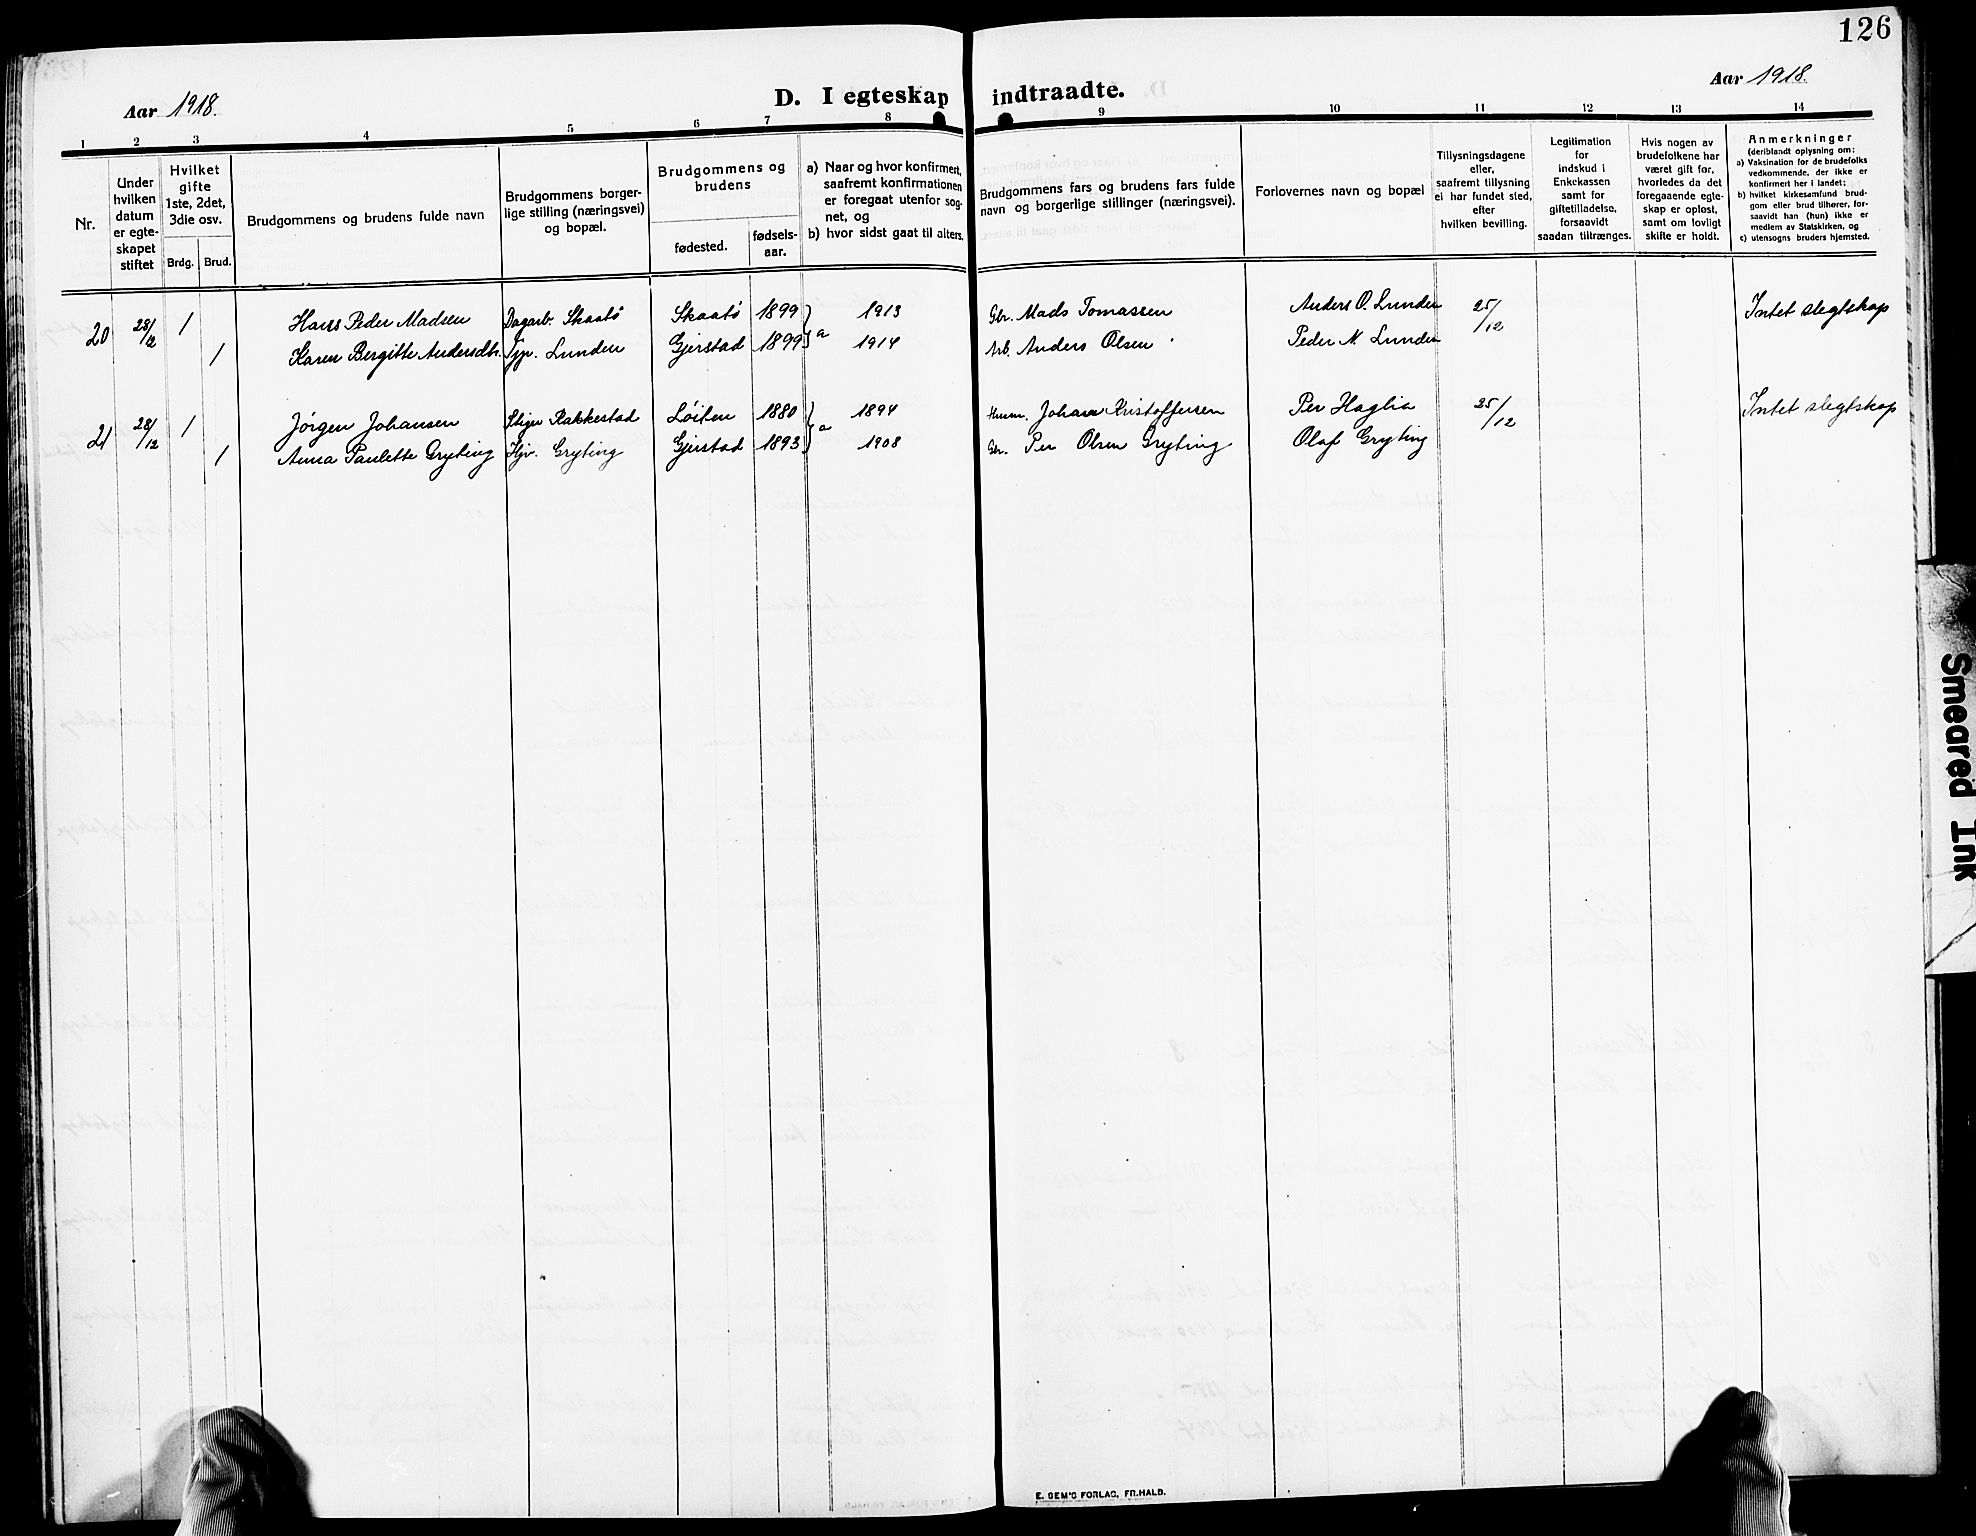 126
Aar 1918.
D. I egteskap indtraadte.
Aar 1918.
1 2 3 4 5 6 7 8 9 10 11 12 13 14
Nr.
Under
hvilken
datum
er egte-
skapet
stiftet
Hvilket
gifte
1ste, 2det,
3die osv.
Brdg. Brud.
Brudgommens og brudens fulde navn
Brudgommens borger-
lige stilling (næringsvei)
og bopæl.
Brudgommens og
brudens
fødested.
fødsels-
aar.
a) Naar og hvor konfirmert,
saafremt konfirmationen
er foregaat utenfor sog-
net, og
b) hvor sidst gaat til alters.
Brudgommens fars og brudens fars fulde
navn og borgerlige stillinger (næringsvei).
Forlovernes navn og bopæl
Tillysningsdagene
eller,
saafremt tillysning
ei har fundet sted,
efter
hvilken bevilling.
Legitimation
for
indskud i
Enkekassen
samt for
giftetilladelse,
forsaavidt
saadan tiltrænges.
Hvis nogen av
brudefolkene har
været gift før,
hvorledes da det
foregaaende egte-
skap er opløst,
samt om lovligt
skifte er holdt.
Anmerkninger
(deriblandt oplysning om:
a) Vaksination for de brudefolks
vedkommende, der ikke er
konfirmert her i landet;
b) hvilket kirkesamfund brud-
gom eller brud tilhører, for-
saavidt han (hun) ikke er
medlem av Statskirken, og
c) utensogns bruders hjemsted.
20 28/12 1 Hans Peder Madsen Dagarb. Skaatø Skaatø 1899 } a 1913 Gbr. Mads Tomassen Anders O. Lunden 25/12 Intet slegtskap
1 Karen Bergitte Andersdtr. Tjp. Lunden Gjerstad 1899 1914 Arb. Anders Olsen Peder N. Lunden
21 28/12 1 Jörgen Johansen Stiger Rakkestad Löiten 1880 } a 1894 Husm. Johan Kristoffersen Per Haglia 25/12 Intet slegtskap
1 Anna Paulette Gryting Hjv. Gryting Gjerstad 1893 1908 Gbr. Per Olsen Gryting Olaf Gryting
E. SEM'S FORLAG, FR.HALD.
Smeared Ink